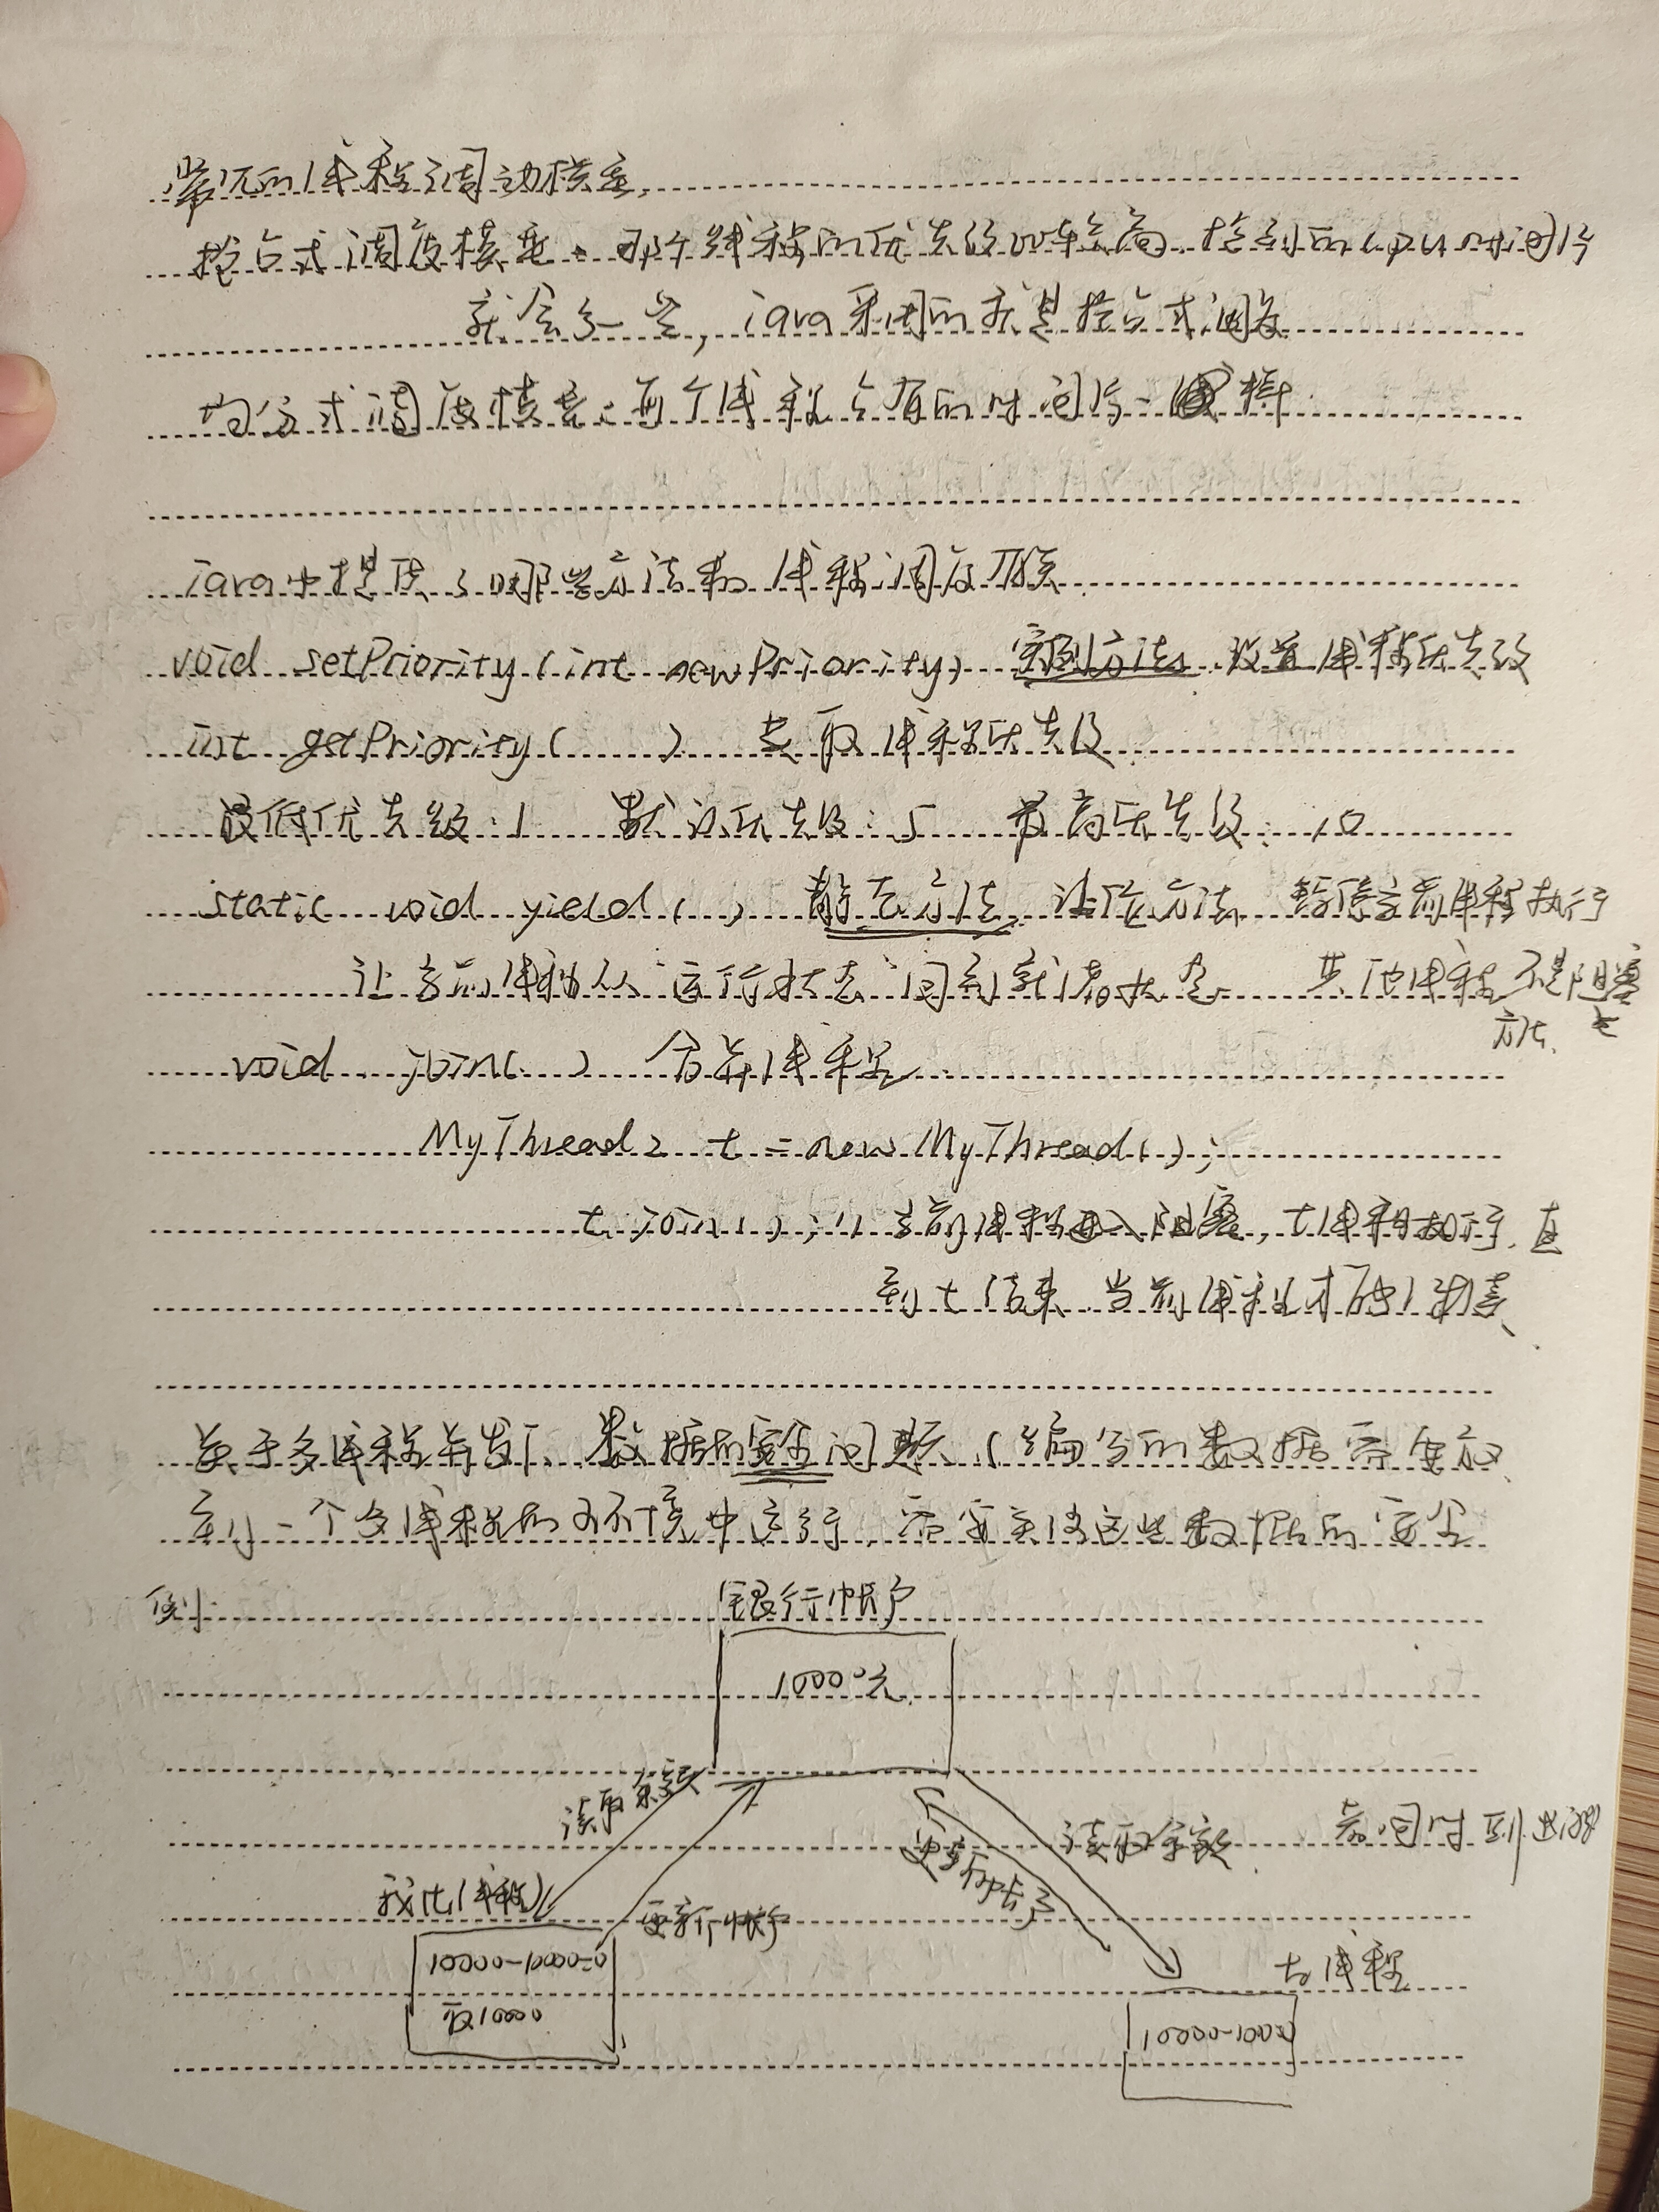 常见的线程调动模型
抢占式调度模型: 那个线程的优先级比较高, 抢到的cpu时间片
就会多一些, java采用的就是抢占式调度
均分式调度模型: 每个线程占有的时间片一样
java中提供了哪些方法和线程调度有关
void setPriority(int newPriority) 实例方法 设置线程优先级
int getPriority( ) 获取线程优先级
最低优先级:1 默认优先级:5 最高优先级:10
static void yield( ) 静态方法 让位方法 暂停当前线程执行
让当前线程从运行状态回到就绪状态 其他线程 不是阻塞
方法
void join( ) 合并线程
MyThread2 t = new MyThread();
t.join(); // 当前线程进入阻塞, t线程执行, 直
到t结束 当前线程才
关于多线程并发下, 数据的安全问题 (编写的数据需要放
到一个多线程的环境中运行, 需要关注这些数据的安全
例:
银行帐户
10000元
读取余额
更新帐户
读取余额
若同时到
线程
更新帐户
10000-10000=0
取10000
线程
10000-1000